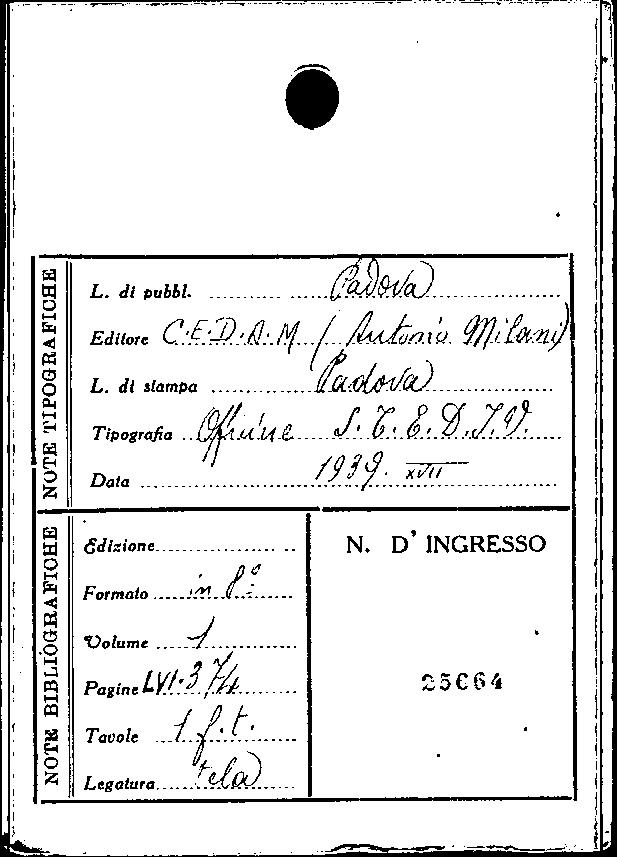 NOTE TIPOGRAFICHE
L. di pubbl. Padova
Editore C.E.D.A.M (Antonio Milani)
L. di stampa Padova
Tipografia Officine S.T.E.D.I.V.
Data 1939. XVII
NOTE BIBLIOGRAFICHE
Edizione
Formato in 8º
Volume 1
Pagine LVI-374
Tavole 1 f.t.
Legatura tela
N. D'INGRESSO
25064